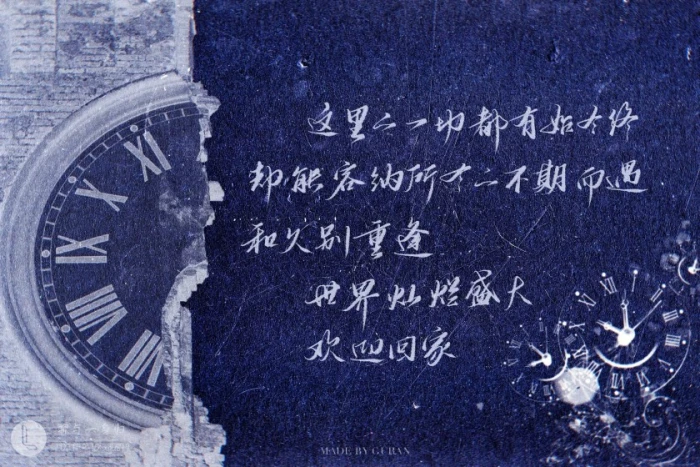 这里的一切都有始有终
却能容纳所有的不期而遇
和久别重逢
世界灿烂盛大
欢迎回家
XI
X
IX
VIII
VII
MADE BY GURAN